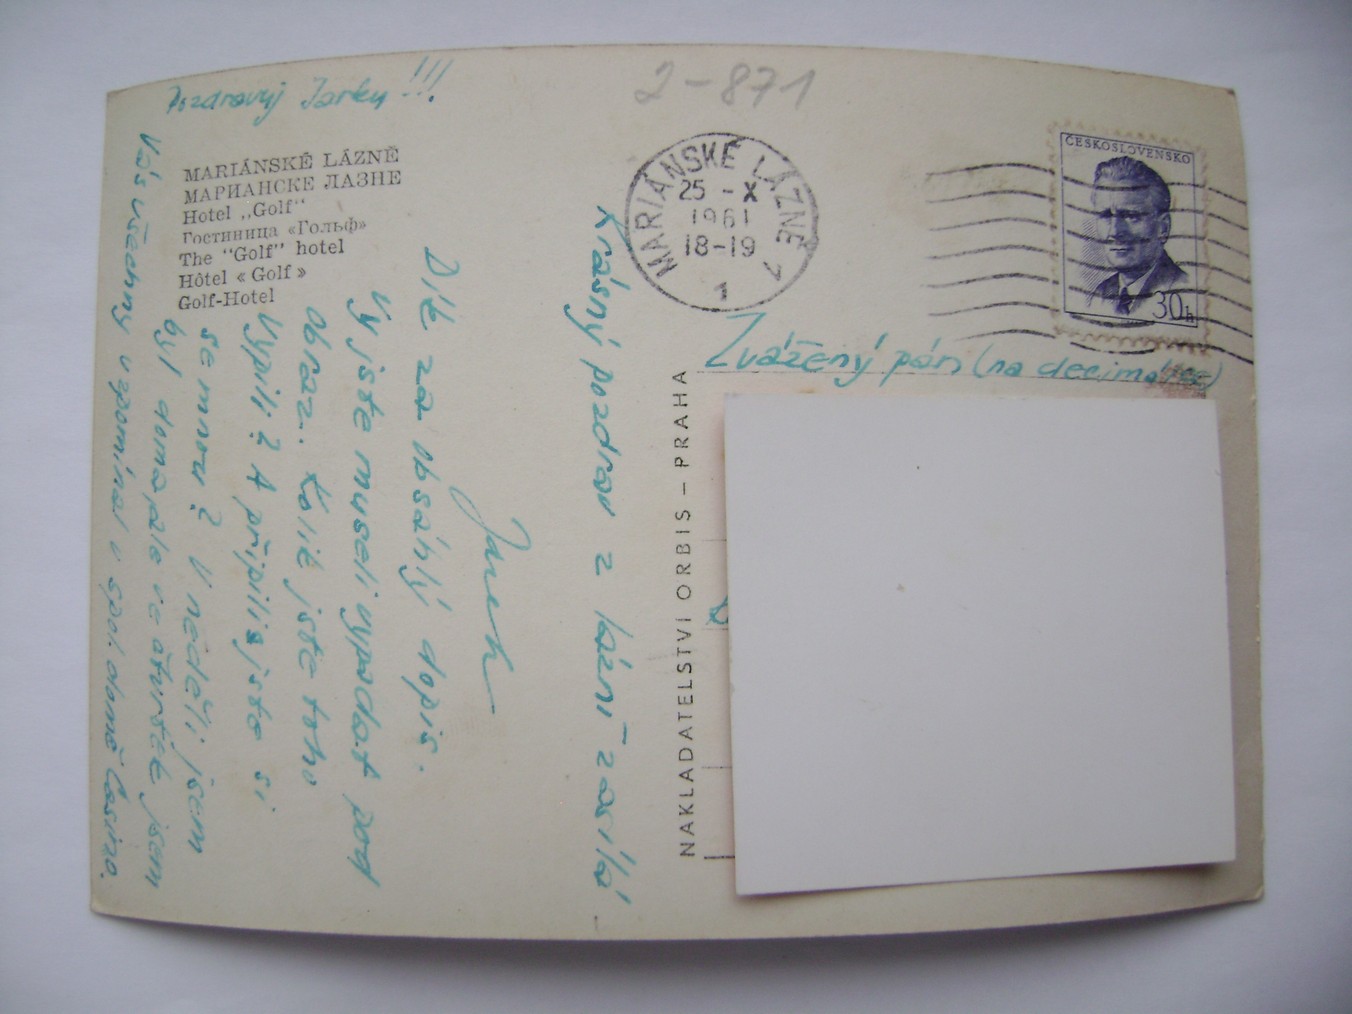 Pozdravuj Jarku !!!
MARIÁNSKÉ LÁZNĚ
МАРИАНСКЕ ЛАЗНЕ
Hotel „Golf“
Гостиница «Гольф»
The "Golf" hotel
Hôtel « Golf »
Golf-Hotel
Krásný pozdrav z lázní zasílá
Dík za obsáhlý dopis.
Vy jste museli vypadat pod
obraz. Kolik jste toho
vypili? A připili jste si
se mnou? V neděli jsem
byl doma, ale ve čtvrtek jsem
Vás všechny vzpomínal v spol. domě Casino.
NAKLADATELSTVÍ ORBIS – PRAHA
2-871
MARIÁNSKÉ LÁZNĚ 1
25 - X
1961
18-19
1
ČESKOSLOVENSKO
30h
Zvážený pán (na decimálce)